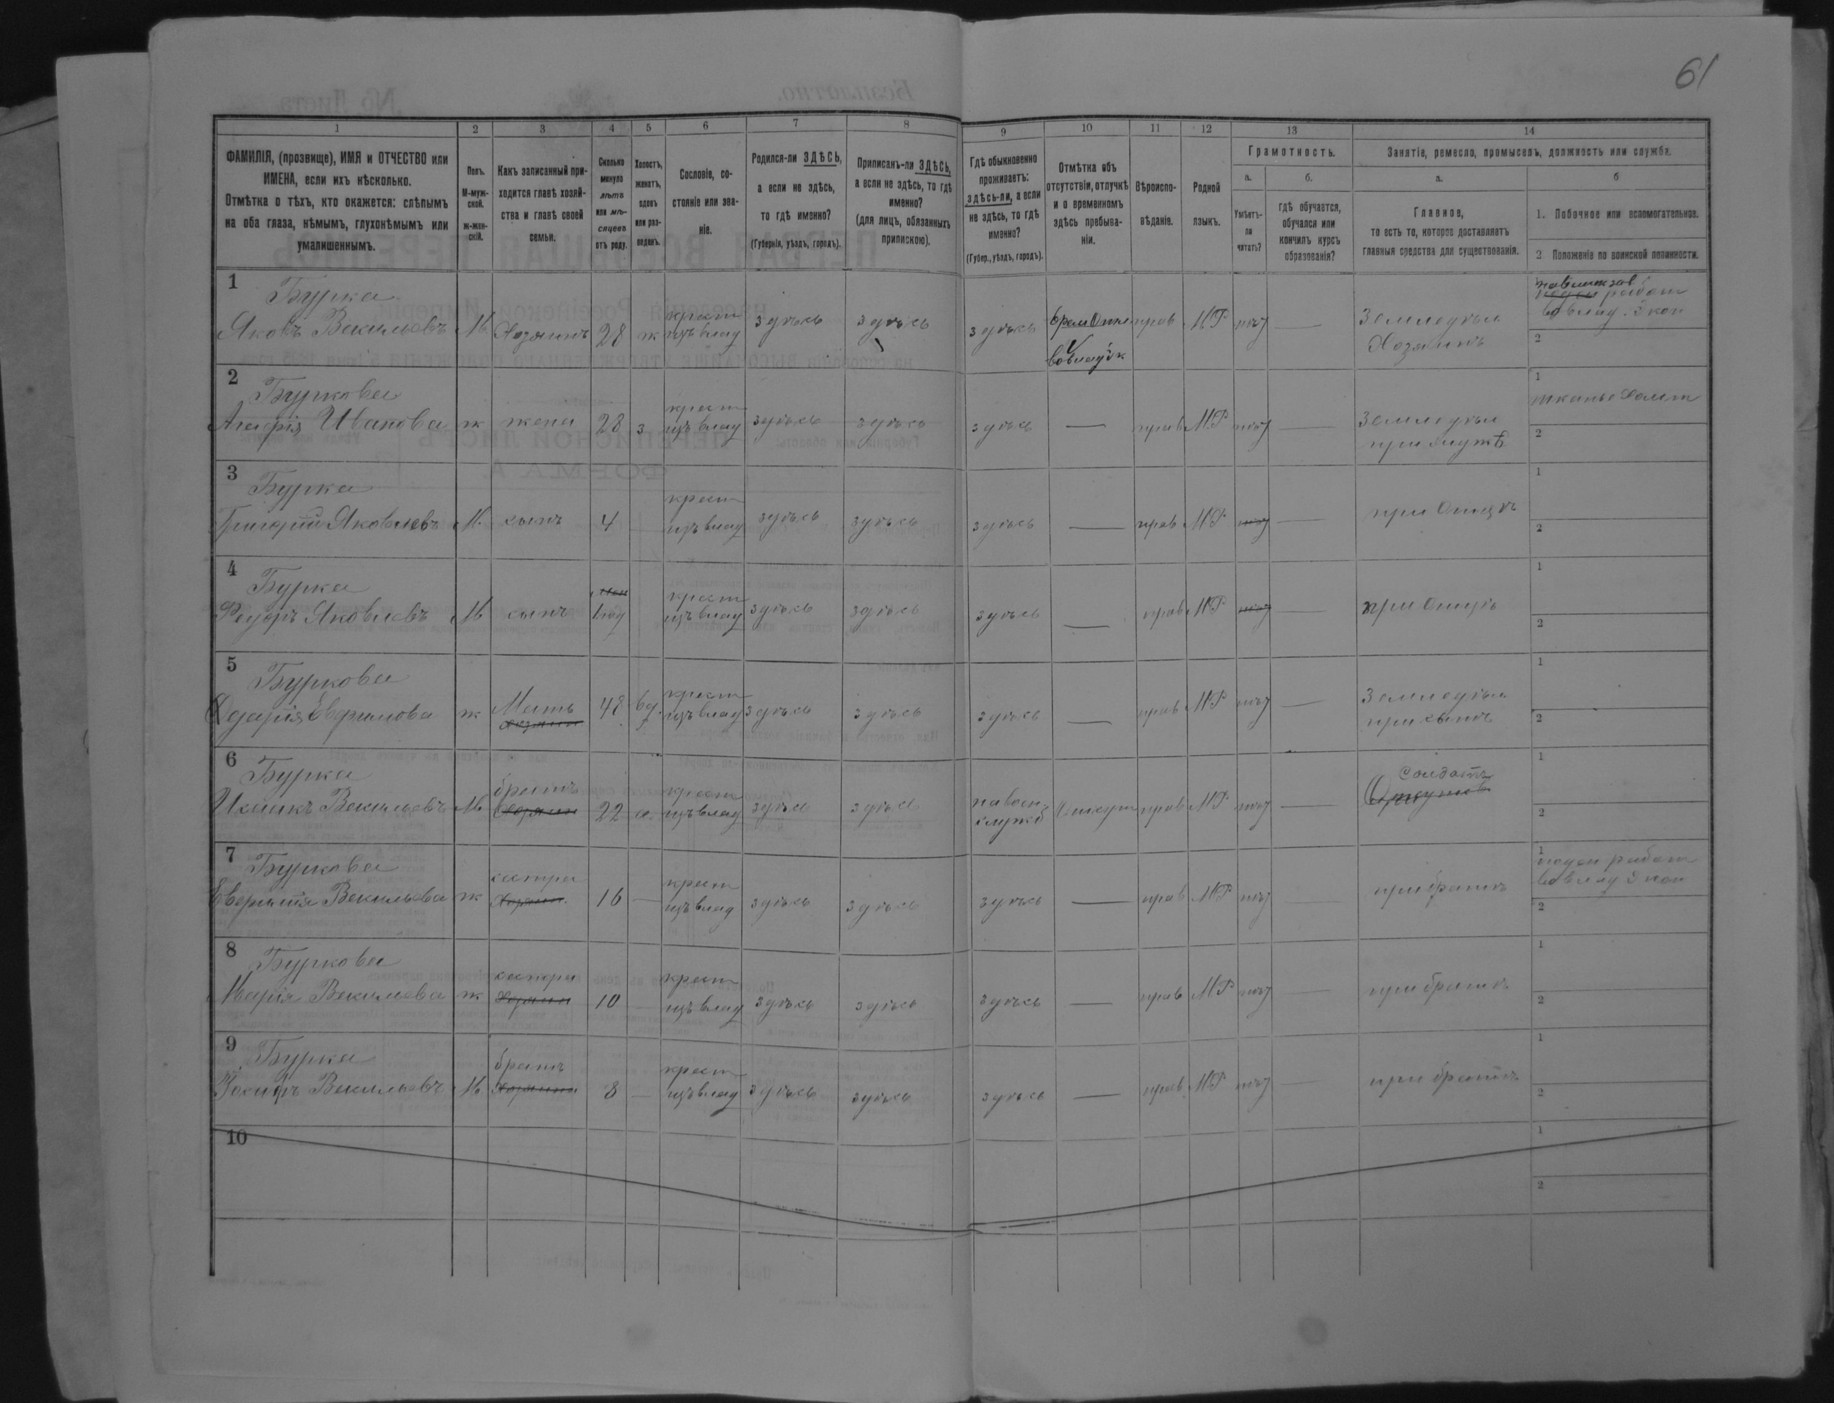 61
1 2 3 4 5 6 7 8 9 10 11 12 13 14
ФАМИЛІЯ, (прозвище), ИМЯ и ОТЧЕСТВО или
ИМЕНА, если ихъ нѣсколько.
Отмѣтка о тѣхъ, кто окажется: слѣпымъ
на оба глаза, нѣмымъ, глухонѣмымъ или
умалишеннымъ.
Полъ.
М-муж-
ской.
ж-жен-
скій.
Какъ записанный при-
ходится главѣ хозяй-
ства и главѣ своей
семьи.
Сколько
минуло
лѣтъ
или мѣ-
сяцевъ
отъ роду.
Холостъ,
женатъ,
вдовъ
или раз-
веденъ.
Сословіе, со-
стояніе или зва-
ніе.
Родился-ли ЗДѢСЬ,
а если не здѣсь,
то гдѣ именно?
(Губернія, уѣздъ, городъ).
Приписанъ-ли ЗДѢСЬ,
а если не здѣсь, то гдѣ
именно?
(для лицъ, обязанныхъ
припискою).
Гдѣ обыкновенно
проживаетъ:
здѣсь-ли, а если
не здѣсь, то гдѣ
именно?
(Губер., уѣздъ, городъ).
Отмѣтка объ
отсутствіи, отлучкѣ
и о временномъ
здѣсь пребыва-
ніи.
Вѣроиспо-
вѣданіе.
Родной
языкъ.
Грамотность.
а.
Умѣетъ-
ли
читать?
б.
гдѣ обучается,
обучался или
кончилъ курсъ
образованія?
Занятіе, ремесло, промыселъ, должность или служба.
а.
Главное,
то есть то, которое доставляетъ
главныя средства для существованія.
б
1. Побочное или вспомогательное.
2 Положеніе по воинской повинности.
1
Бурка
Яковъ Васильевъ М Хозяинъ 28 ж крест изъ влад здѣсь здѣсь здѣсь прав МР нѣт —
Земледѣл
Хозяинъ
2
2
Буркова
Агафія Иванова ж жена 28 з крест изъ влад здѣсь здѣсь здѣсь — прав МР нѣт —
Земледѣл
при мужѣ
1
2
3
Бурка
Григорій Яковлевъ М. сынъ 4 крест изъ влад здѣсь здѣсь здѣсь — прав МР нѣт —
при Отцѣ
1
2
4
Бурка
Федоръ Яковлевъ М сынъ 1 год крест изъ влад здѣсь здѣсь здѣсь — прав МР нѣт —
при Отцѣ
1
2
5
Буркова
Евфимова ж Мать 48 вд. крест изъ влад здѣсь здѣсь здѣсь — прав МР нѣт —
Земледѣл
при сынѣ
1
2
6
Бурка
Васильевъ М братъ 22 х. крест изъ влад здѣсь здѣсь на воен службѣ прав МР нѣт —
Солдатъ
1
2
7
Буркова
Васильева ж сестра 16 — крест изъ влад здѣсь здѣсь здѣсь — прав МР нѣт —
при братѣ
1
2
8
Буркова
Марія Васильева ж сестра 10 — крест изъ влад здѣсь здѣсь здѣсь — прав МР нѣт —
при братѣ
1
2
9
Бурка
Васильевъ М братъ 8 — крест изъ влад здѣсь здѣсь здѣсь — прав МР нѣт —
при братѣ
1
2
10
1
2